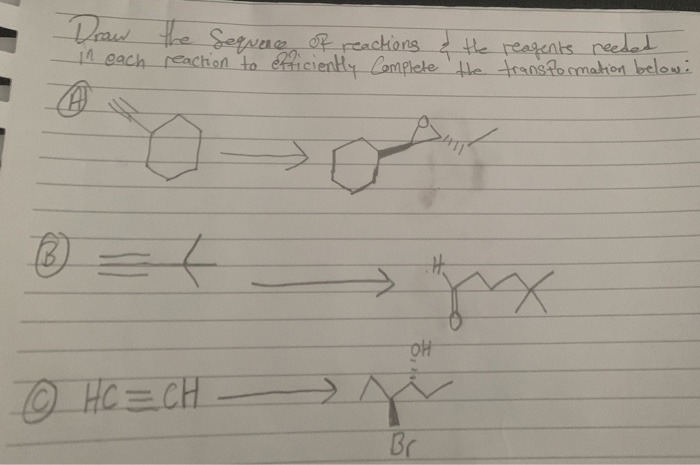 Draw the Sequence of reactions & the reagents needed
in each reaction to efficiently Complete the transformation below:
A
O
B
H
O
OH
C HC≡CH
Br